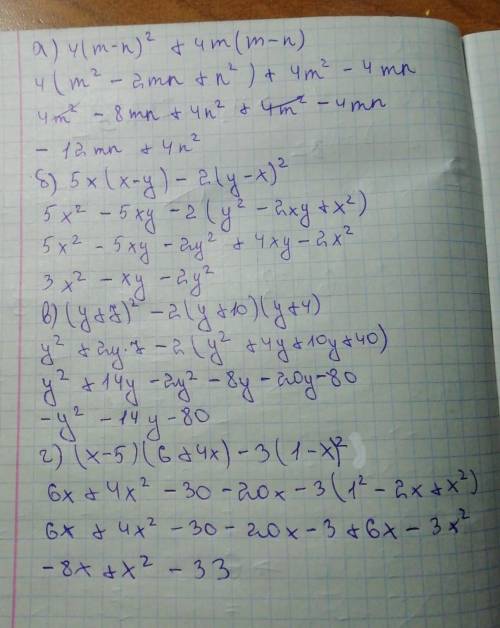 а) 4(m-n)² + 4m(m-n)
4(m² - 2mn + n²) + 4m² - 4mn
4m² - 8mn + 4n² + 4m² - 4mn
- 12mn + 4n²
б) 5x(x-y) - 2(y-x)²
5x² - 5xy - 2(y² - 2xy + x²)
5x² - 5xy - 2y² + 4xy - 2x²
3x² - xy - 2y²
в) (y+7)² - 2(y+10)(y+4)
y² + 2y·7 - 2(y² + 4y + 10y + 40)
y² + 14y - 2y² - 8y - 20y - 80
-y² - 14y - 80
г) (x-5)(6+4x) - 3(1-x)²
6x + 4x² - 30 - 20x - 3(1² - 2x + x²)
6x + 4x² - 30 - 20x - 3 + 6x - 3x²
- 8x + x² - 33